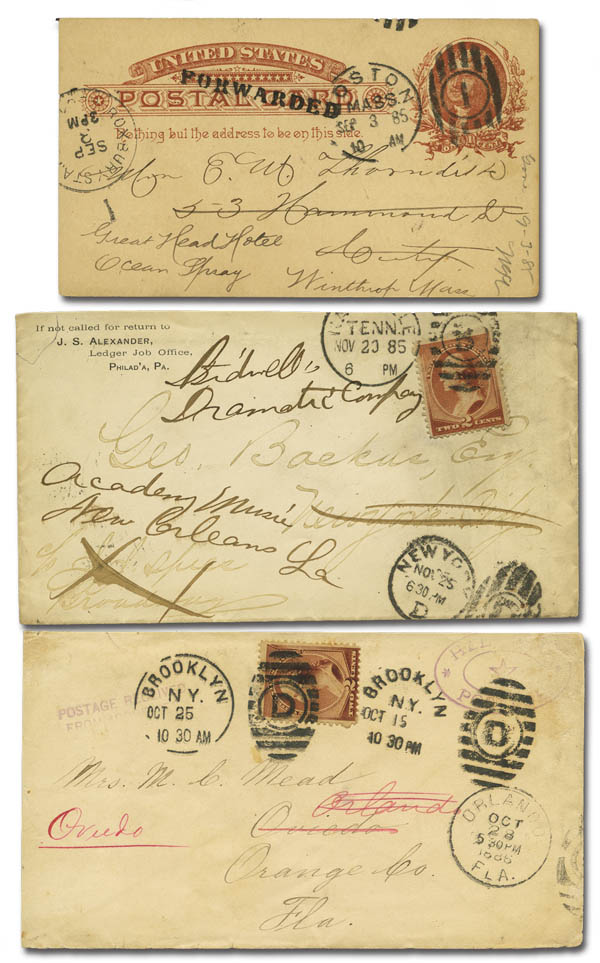 UNITED STATES
POSTAL CARD
FORWARDED
Nothing but the address to be on this side.
BOSTON
MASS.
SEP 3 85
10 AM
1
ROXBURY STA.
SEP
2
3PM
E. W. Thorndike
53 Hammond St
City
Great Head Hotel
Ocean Spray
Winthrop Mass
If not called for return to
J. S. ALEXANDER,
Ledger Job Office,
PHILAD'A, PA.
TENN.
NOV 20 85
6 PM
TWO 2 CENTS
Bidwell's
Dramatic Company
Geo. Backus, Esq
New York City
Academy Music
New Orleans La.
Broadway
NEW YORK
NOV 25
630PM
D
POSTAGE
FROM
BROOKLYN
N.Y.
OCT 25
10 30 AM
D
BROOKLYN
N.Y.
OCT 15
10 30 PM
O
Mrs. M. C. Mead
Orlando
Oviedo
Oviedo
Orange Co.
Fla.
ORLANDO
OCT
28
5 30PM
1885
FLA.